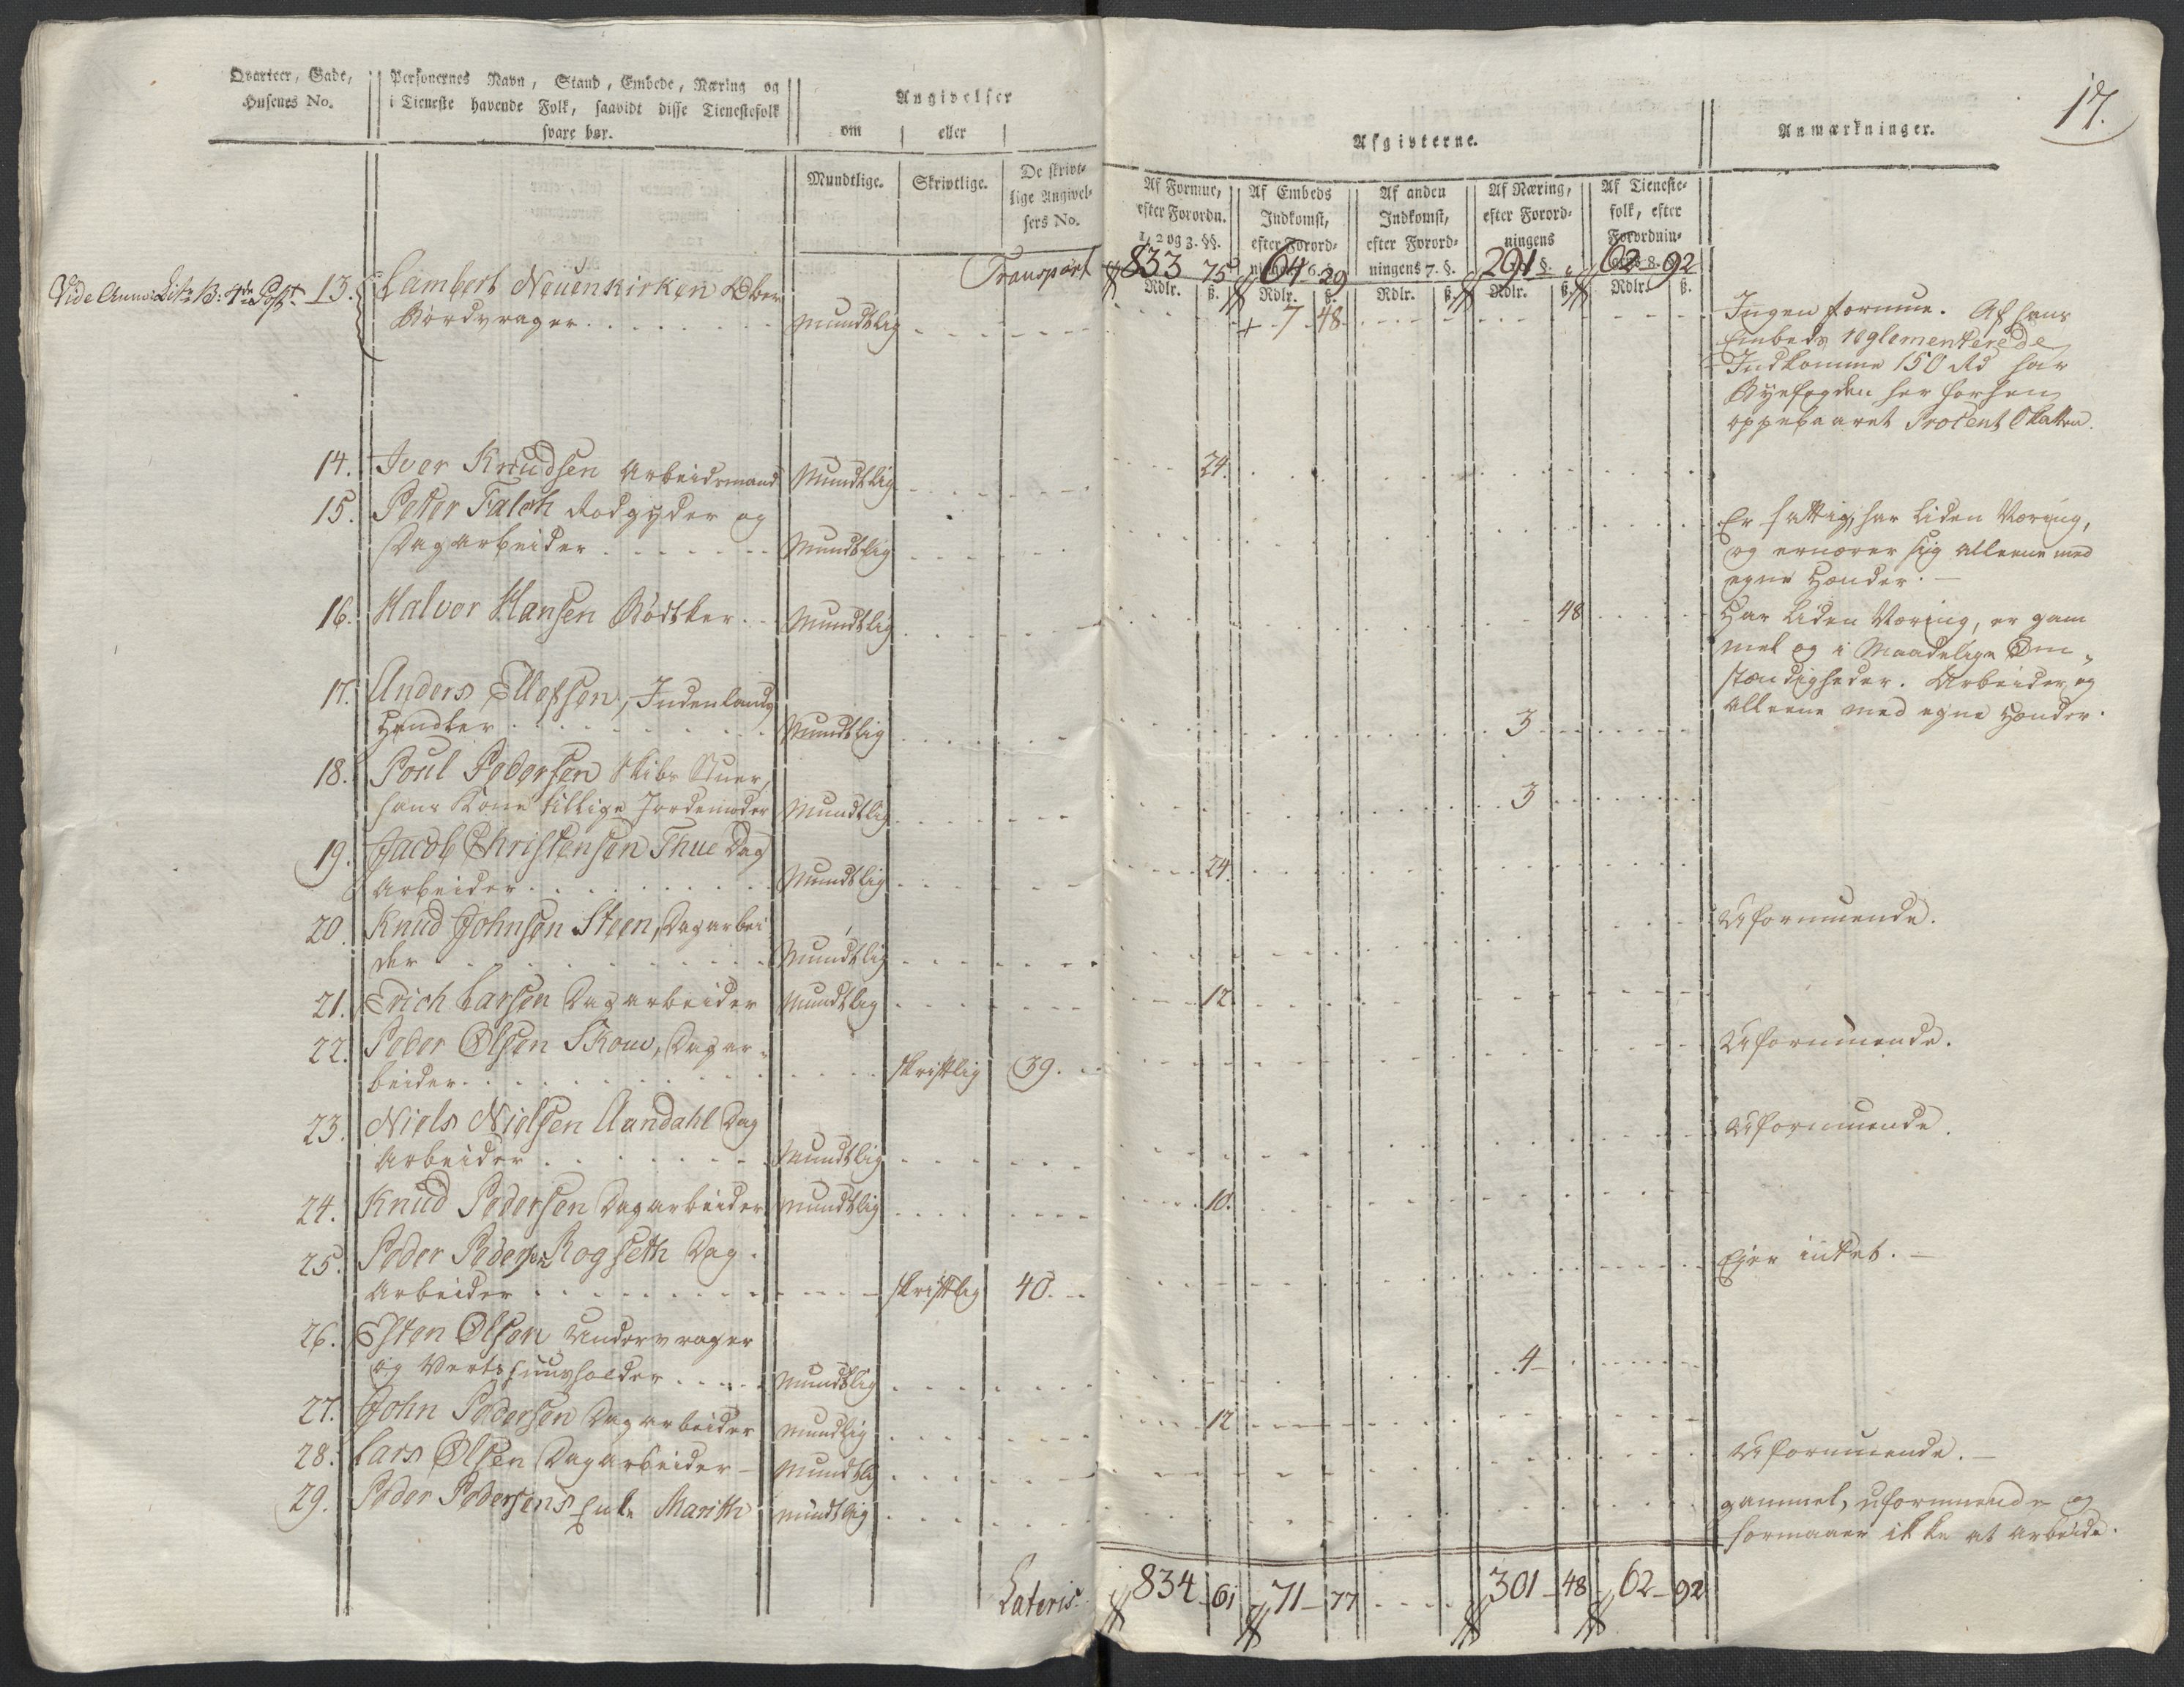 17.
Qvarteer, Gade,
Husenes No.
Personernes Navn, Stand, Embede, Næring og
i Tieneste havende Folk, saavidt disse Tienestefolk
svare bør.
Angivelser
om
eller
Mundtlige.
Skrivtlige.
De skrivt-
lige Angivel-
sers No.
Afgivterne.
Af Formue,
efter Forordn.
1, 2 og 3. §§.
Af Embeds
Indkomst,
efter Forord-
ningens 6. §.
Af anden
Indkomst,
efter Forord-
ningens 7. §.
Af Næring,
efter Forord-
ningens
§.
Af Tieneste-
folk, efter
Forordnin-
8. §.
Anmærkninger.
Rdlr. ß. Rdlr. ß. Rdlr. ß. Rdlr. ß. Rdlr. ß.
Transport 833 75 64 29 291 " 62 92
Vide Litr. B: 4de Post 13. Lambert Neuenkirken Ober
Bordvrager mundtlig 7 48
Ingen formue. Af hans
Embeds reglementerede
Indkomme 150 Rd har
Byefogden her forhen
oppebaaret Procent Skatten.
14. Iver Knudsen Arbeidsmand Mundtlig 24.
15. Peter Falch Rodgyder og
Dagarbeider Mundtlig
Er fattig, har liden Næring,
og ernærer sig alleene med
egne Hænder.
16. Halvor Hansen Bødtker Mundtlig 48
Har liden Næring, er gam
mel og i Maadelige Om-
stændigheder. Arbeider og
alleene med egne Hænder.
17. Anders Ellefsen, Indenlands
Handler Mundtlig 3
18. Poul Pedersen Skibs Stuer,
hans Kone tillige Jordemoder Mundtlig 3
19. Jacob Christensen Thue Dag
Arbeider Mundtlig 24.
20. Knud Johnsen Steen, Dagarbei
der Mundtlig
Uformuende.
21. Erich Larsen Dagarbeider Mundtlig 12.
22. Peder Olsen Skow, Dagar-
beider skriftlig 39.
Uformuende.
23. Niels Nielsen Aandahl Dag
Arbeider Mundtlig
Uformuende.
24. Knud Pedersen Dagarbeider mundtlig 10.
25. Peder Peders. Rogseth Dag-
Arbeider skriftlig 40.
Ejer intet.
26. Esten Olsen Undervrager
og Vertshuusholder mundtlig 4
27. John Pedersen Dagarbeider mundtlig 12
28. Lars Olsen Dagarbeider mundtlig
Uformuende.
29. Peder Pedersens Enke Marith mundtlig
gammel, uformuende og
formaaer ikke at arbeide.
Lateris 834 61 71 77 301 48 62 92